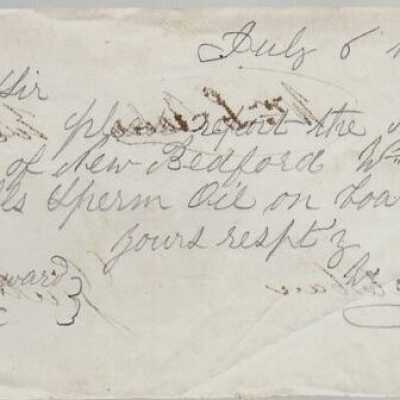 July 6
Sir
please report the
of New Bedford Wm
ls Sperm Oil on boa
yours respt'y
ward